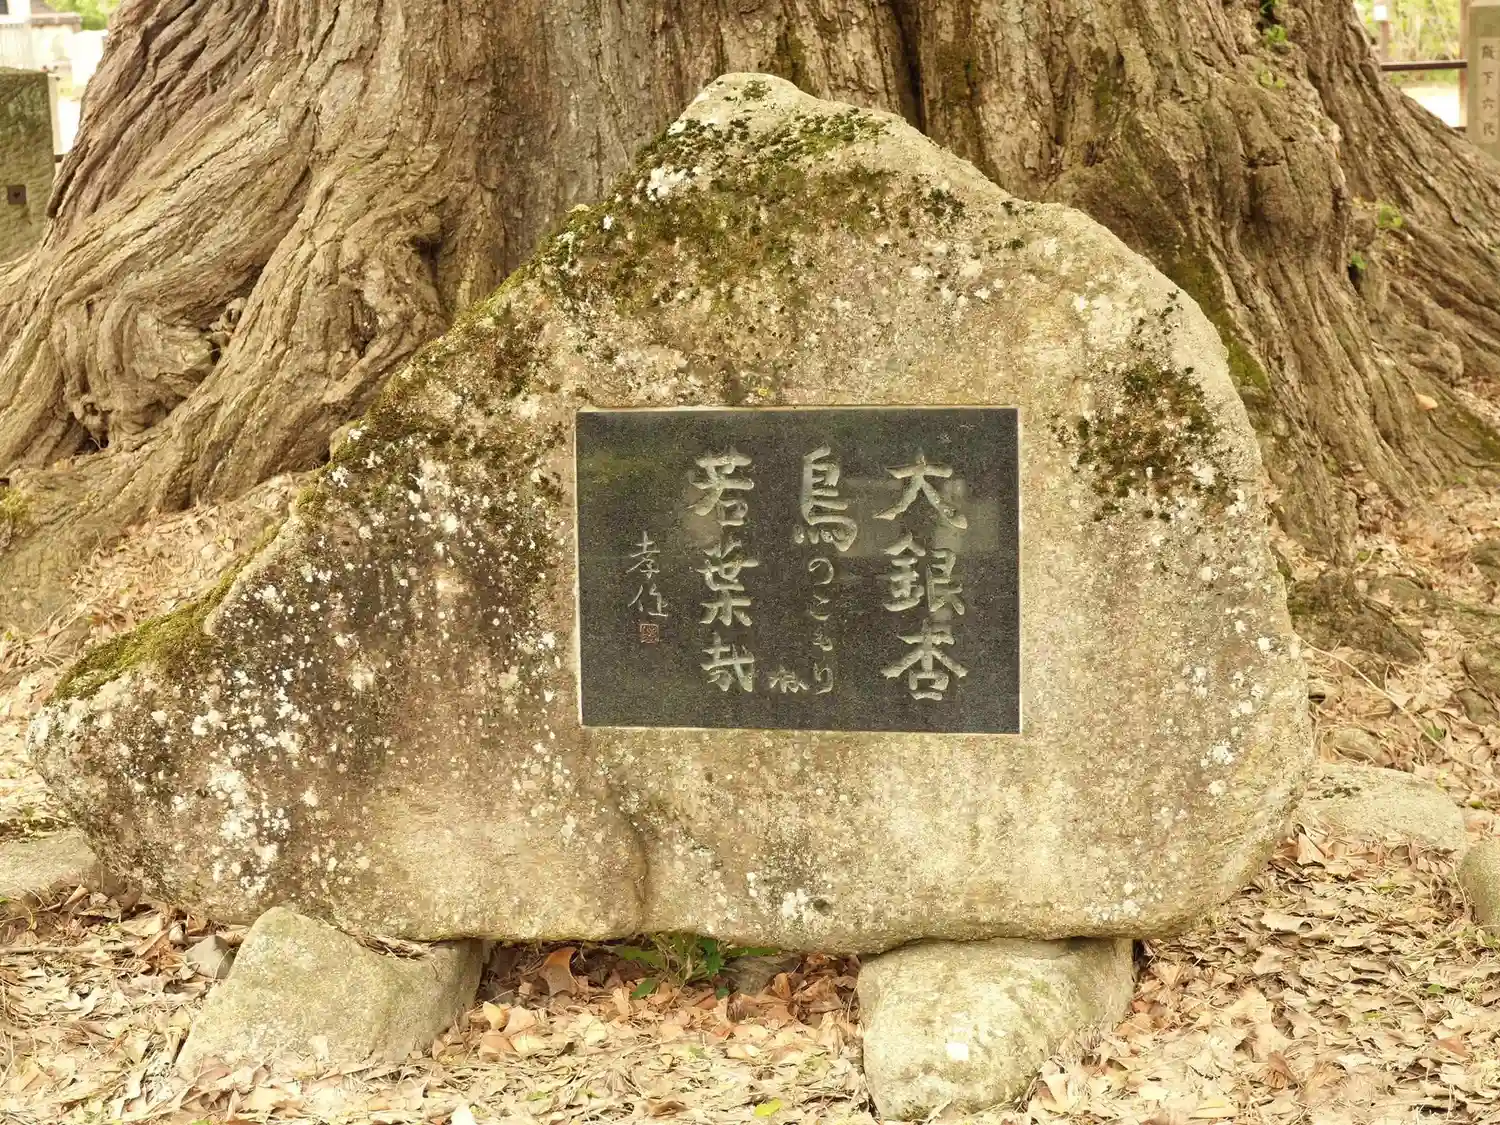 大銀杏
鳥のこもりね
若葉哉
孝作